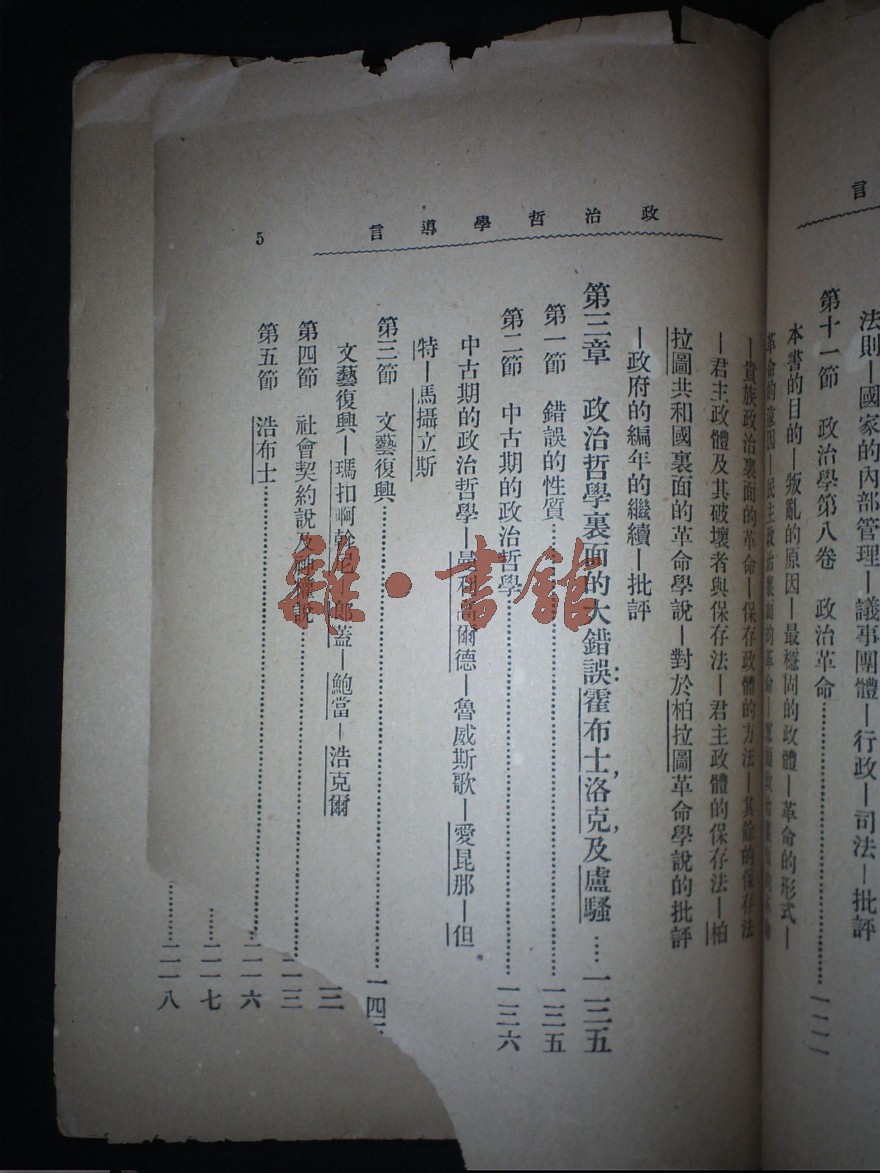 言
法則—國家的內部管理—議事團體—行政—司法—批評
第十一節　政治學第八卷　政治革命……一二一
本書的目的—叛亂的原因—最穩固的政體—革命的形式—
政治哲學導言
5
—貴族政治裏面的革命—保存政體的方法—其餘的保存法
—君主政體及其破壞者與保存法—君主政體的保存法—柏
拉圖共和國裏面的革命學說—對於柏拉圖革命學說的批評
—政府的編年的繼續—批評
第三章　政治哲學裏面的大錯誤：霍布士，洛克，及盧騷……一三五
第一節　錯誤的性質……一三五
第二節　中古期的政治哲學……一三六
中古期的政治哲學—曼利高爾德—魯威斯歌—愛昆那—但
特—馬攝立斯
第三節　文藝復興……一四
文藝復興—瑪扣啊幹尼—郎蓋—鮑當—浩克爾
第四節　社會契約說及神權說
第五節　浩布士
二一三
二一六
二一七
二一八
雜·書館